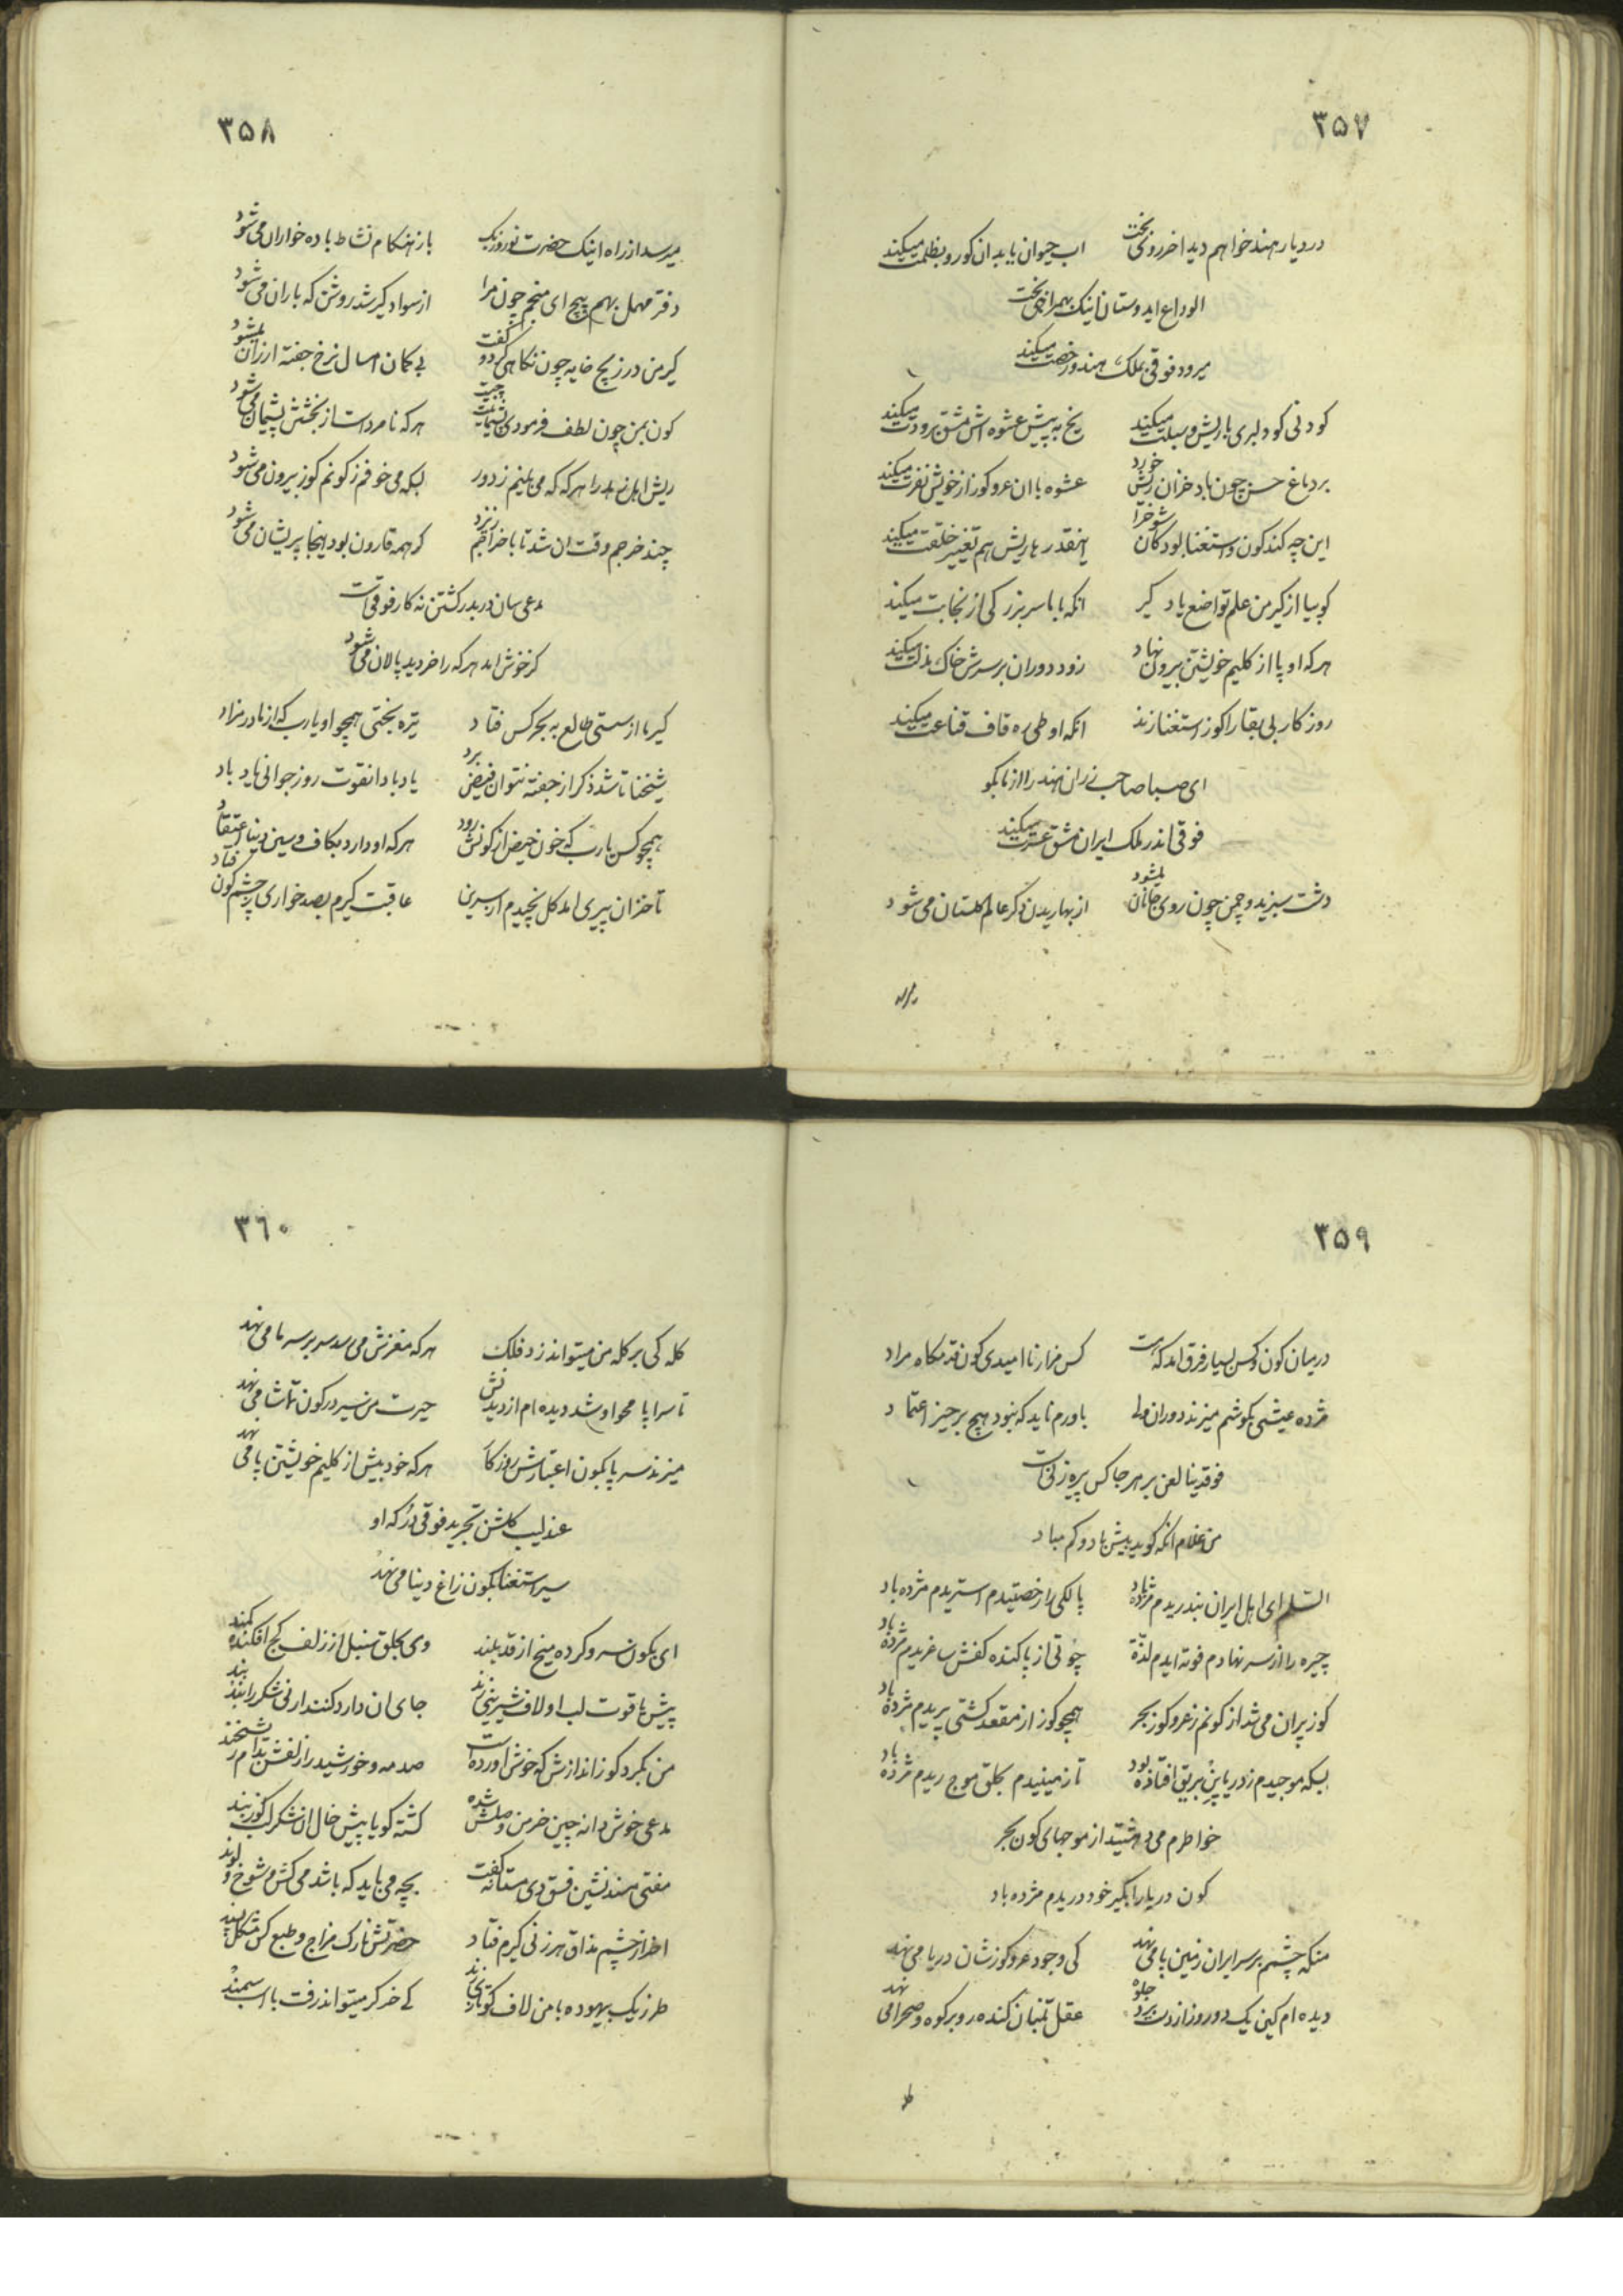 ۳۵۷
در دیار هند خواهم دید اخر روی بخت اب حیوان باید ان کو رو بظلمت میکند
الوداع ایدوستان اینک بهمراهی بخت
میرود فوقی بملک هند و رخصت میکند
کودنی کو دلبری با ریش و سبلت میکند یخ به پیش عشوه اش مشق برودت میکند
بر دماغ حسن چون باد خزان ریش خورد عشوه با ان عر و کوز از خویش نفرت میکند
این چه کند کون و استغنا بود کان شوخ را اینقدر با ریش هم تغییر خلقت میکند
کو بیا از کیر من علم تواضع یاد کیر انکه با ما سر بزرکی از نجابت میکند
هر که او پا از کلیم خویشتن بیرون نهاد زود دوران بر سرش خاک مذلت میکند
روزکار بی بقا را کوز استغنا زند انکه او طی ره قاف قناعت میکند
ای صبا صاحب زران هند را از ما بکو
فوقی اندر ملک ایران مشق عسرت میکند
دشت سبزید و چمن چون روی جانان میشود از بهاریدن دکر عالم کلستان می شود
۳۵۸
میرسد از راه اینک حضرت نوروزبک باز هنکام نشاط باده خواران می شود
دفتر مهمل بهم پیچ ای منجم چون مرا از سواد کیر شد روشن که باران می شود
کیر من در زیچ خایه چون نکاهی کرد و کفت بی کمان امسال نرخ جفته ارزان میشود
کون بمن چون لطف فرمودی پشیمانیت چیست هر که نامرد است از بخشش پشیمان می شود
ریش اهل هند را هر که که می بینم ز دور بسکه می خوفم ز کونم کوز بیرون می شود
چند خرجم وقت ان شد تا باخراجم زند کر همه قارون بود اینجا پریشان می شود
مدعی سان در بدر کشتن نه کار فوقی است
کر خوش اید هر که را خر دید پالان می شود
کیر ما از سستی طالع به بحر کس فتاد تیره بختی همچو او یارب که از مادر مزاد
شیخنا تا شد ذکر از جفته نتوان فیض برد یاد باد انقوت روز جوانی یاد باد
همچو کس یارب که خون حیض از کونش رود هر که او دارد بکاف و سین دنیا اعتقاد
تا خزان پیری امد کل نچیدم از سرین عاقبت کیرم بصد خواری ز چشم کون فتاد
۳۵۹
در میان کون و کس بسیار فرق امد که هست کس مزار ناامیدی کون قدمکاه مراد
مژده عیشی بکوشم میزند دوران ولی باورم ناید که نبود هیچ بر حیز اعتماد
فوقدینا لعن بر هر جا کس پیره زنی است
من غلام انکه کوید بیش باد و کم مباد
السلام ای اهل ایران بندریدم مژده باد پالکی را رخصتیدم استریدم مژده باد
چیره را از سر نهادم فوته ایدم لذة چوتی از پا کنده کفش ساغریدم مژده باد
کوز پران می شد از کونم ز عر و کوز بحر همچو کوز از مقعد کشتی پریدم مژده باد
بسکه موجیدم ز دریا پش بریق افتاده بود تا زمینیدم بحلق موج ریدم مژده باد
خواطرم می دهشتید از موجهای کون بحر
کون دریا را بکیر خود دریدم مژده باد
منکه چشم بر سر ایران زمین پا می نهد کی وجود عر و کوز شان دریا می نهد
دیده ام کین یک دو روز از دست برد جلوه عقل تنبان کنده رو بر کوه و صحرا می نهد
۳٦۰
کله کی بر کله من میتواند زد فلک هر که مغزش می رسد سر بر سر ما می نهد
تا سراپا محو او شد دیده ام از دیدنش حیرت من سیر در کون تماشا می نهد
میزند سر پا بکون اعتبارش روزکار هر که خود بیش از کلیم خویشتن پا می نهد
عندلیب کلشن تجرید فوقی در که او
سیر استغنا بکون زاغ دنیا می نهد
ای بکون سرو کرده میخ از قد بلند وی بحلق سنبل از زلف کج افکنده کمند
پیش یاقوت لب او لاف شیرینی زند جای ان دارد کنند ار نی شکر را بند بند
من بکرد کوز اندازش که خوش اورده است صد مه و خورشید را زلفش بدام ریشخند
مدعی خوش دانه چین خرمن وصلش شده کشته کویا پیش خال ان شکر لب کوز بند
مفتی مسند نشین فسق دی مستانه کفت بچه می باید که باشد می کش و شوخ و لوند
اخر از چشم مذاق هر زنی کیرم فتاد حضرتش نازک مزاج و طبع کس مشکل پسند
طرزیک بیهوده با من لاف کوتاری زند کی خر کر میتواند رفت با اسب سمند